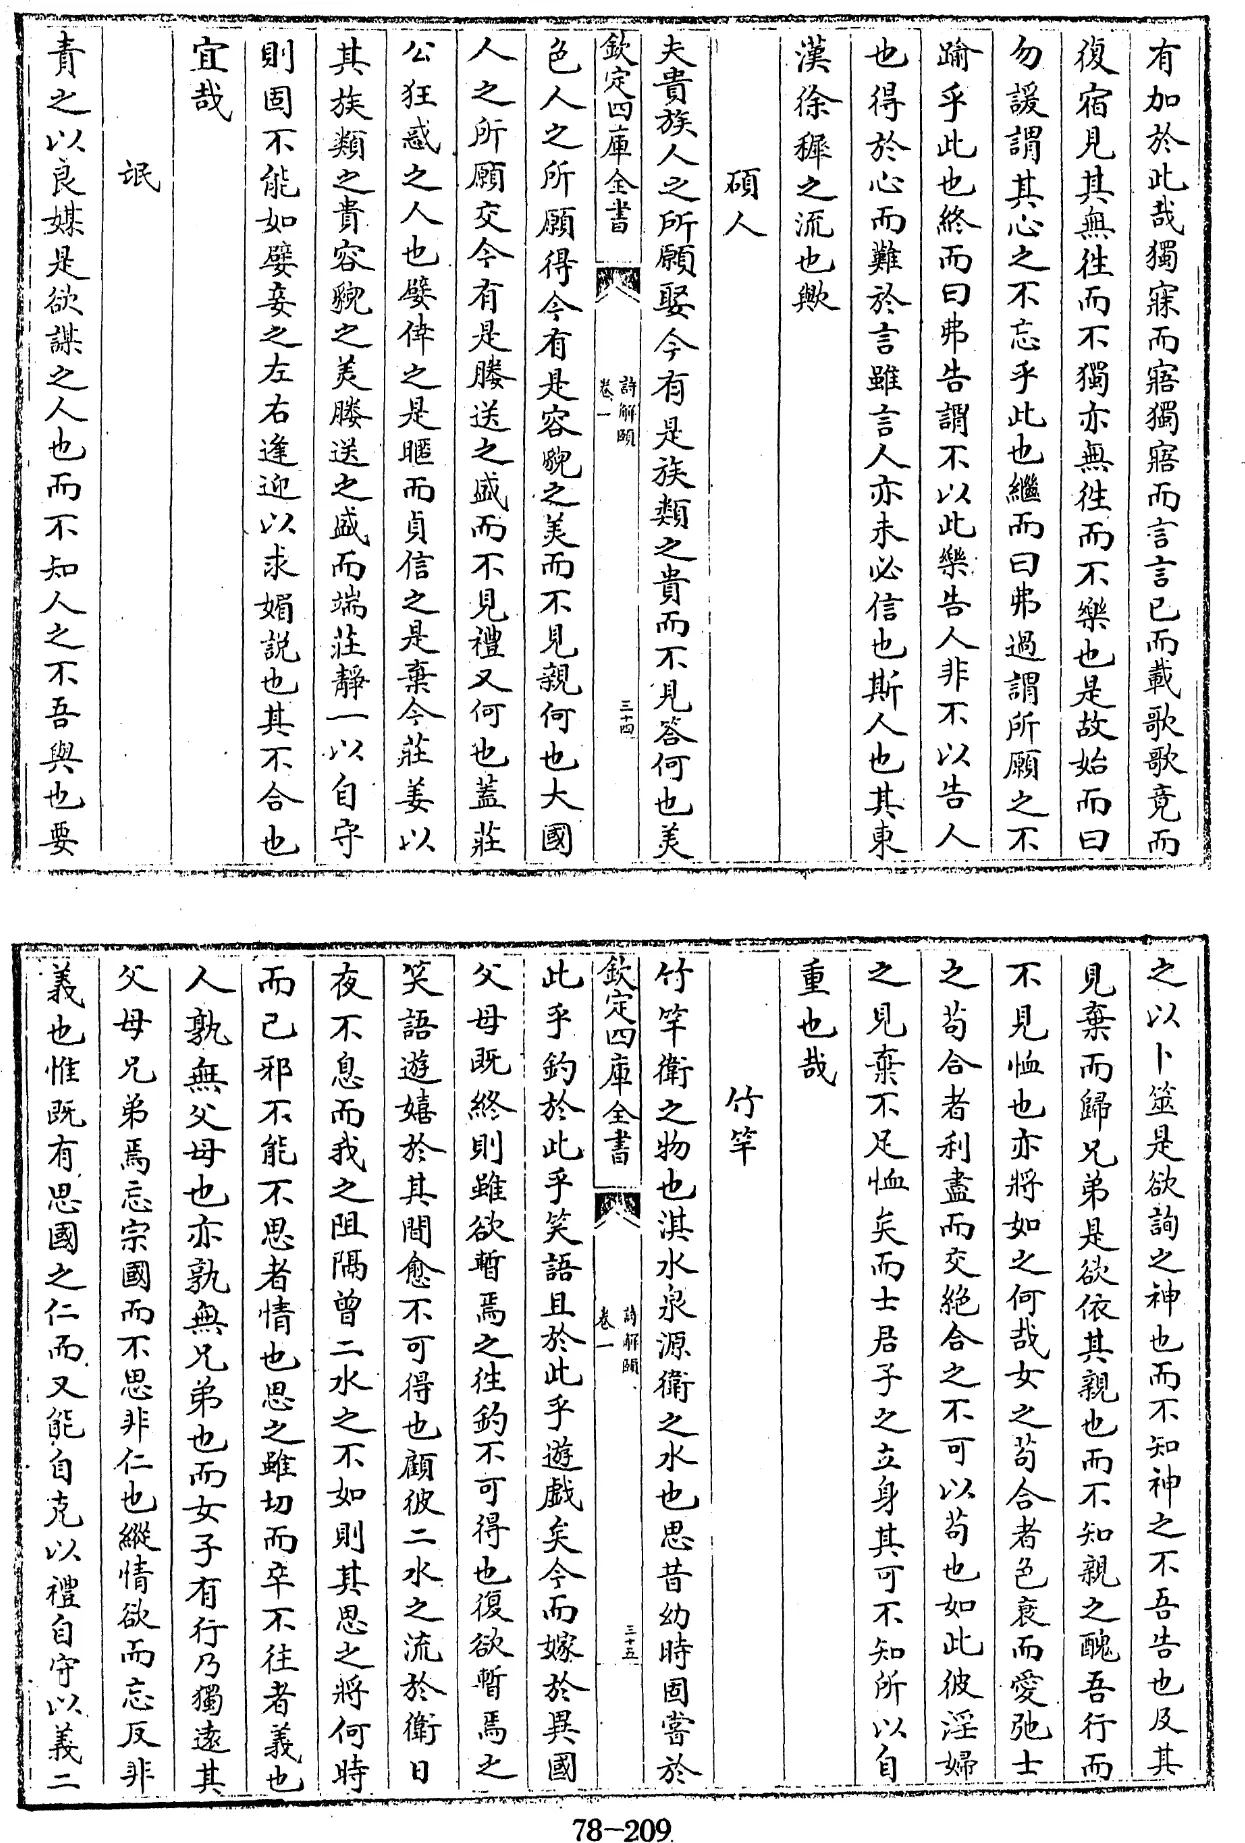 有加於此哉獨寐而寤獨寤而言言已而載歌歌竟而
復宿見其無徃而不獨亦無徃而不樂也是故始而曰
勿諼謂其心之不忘乎此也繼而曰弗過謂所願之不
踰乎此也終而曰弗告謂不以此樂告人非不以告人
也得於心而難於言雖言人亦未必信也斯人也其東
漢徐穉之流也歟
碩人
夫貴族人之所願娶今有是族類之貴而不見答何也美
欽定四庫全書
詩解頤
卷一
三十四
色人之所願得今有是容貌之美而不見親何也大國
人之所願交今有是媵送之盛而不見禮又何也蓋莊
公狂惑之人也嬖倖之是暱而貞信之是棄今莊姜以
其族類之貴容貌之美媵送之盛而端莊靜一以自守
則固不能如嬖妾之左右逢迎以求媚說也其不合也
宜哉
氓
責之以良媒是欲謀之人也而不知人之不吾與也要
之以卜筮是欲詢之神也而不知神之不吾告也及其
見棄而歸兄弟是欲依其親也而不知親之醜吾行而
不見恤也亦將如之何哉女之苟合者色衰而愛弛士
之苟合者利盡而交絶合之不可以苟也如此彼淫婦
之見棄不足恤矣而士君子之立身其可不知所以自
重也哉
竹竿
竹竿衛之物也淇水泉源衛之水也思昔幼時固嘗於
欽定四庫全書
詩解頤
卷一
三十五
此乎釣於此乎笑語且於此乎遊戲矣今而嫁於異國
父母既終則雖欲暫焉之徃釣不可得也復欲暫焉之
笑語遊嬉於其間愈不可得也顧彼二水之流於衛日
夜不息而我之阻隔曾二水之不如則其思之將何時
而已邪不能不思者情也思之雖切而卒不往者義也
人孰無父母也亦孰無兄弟也而女子有行乃獨遠其
父母兄弟焉忘宗國而不思非仁也縱情欲而忘反非
義也惟既有思國之仁而又能自克以禮自守以義二
78-209